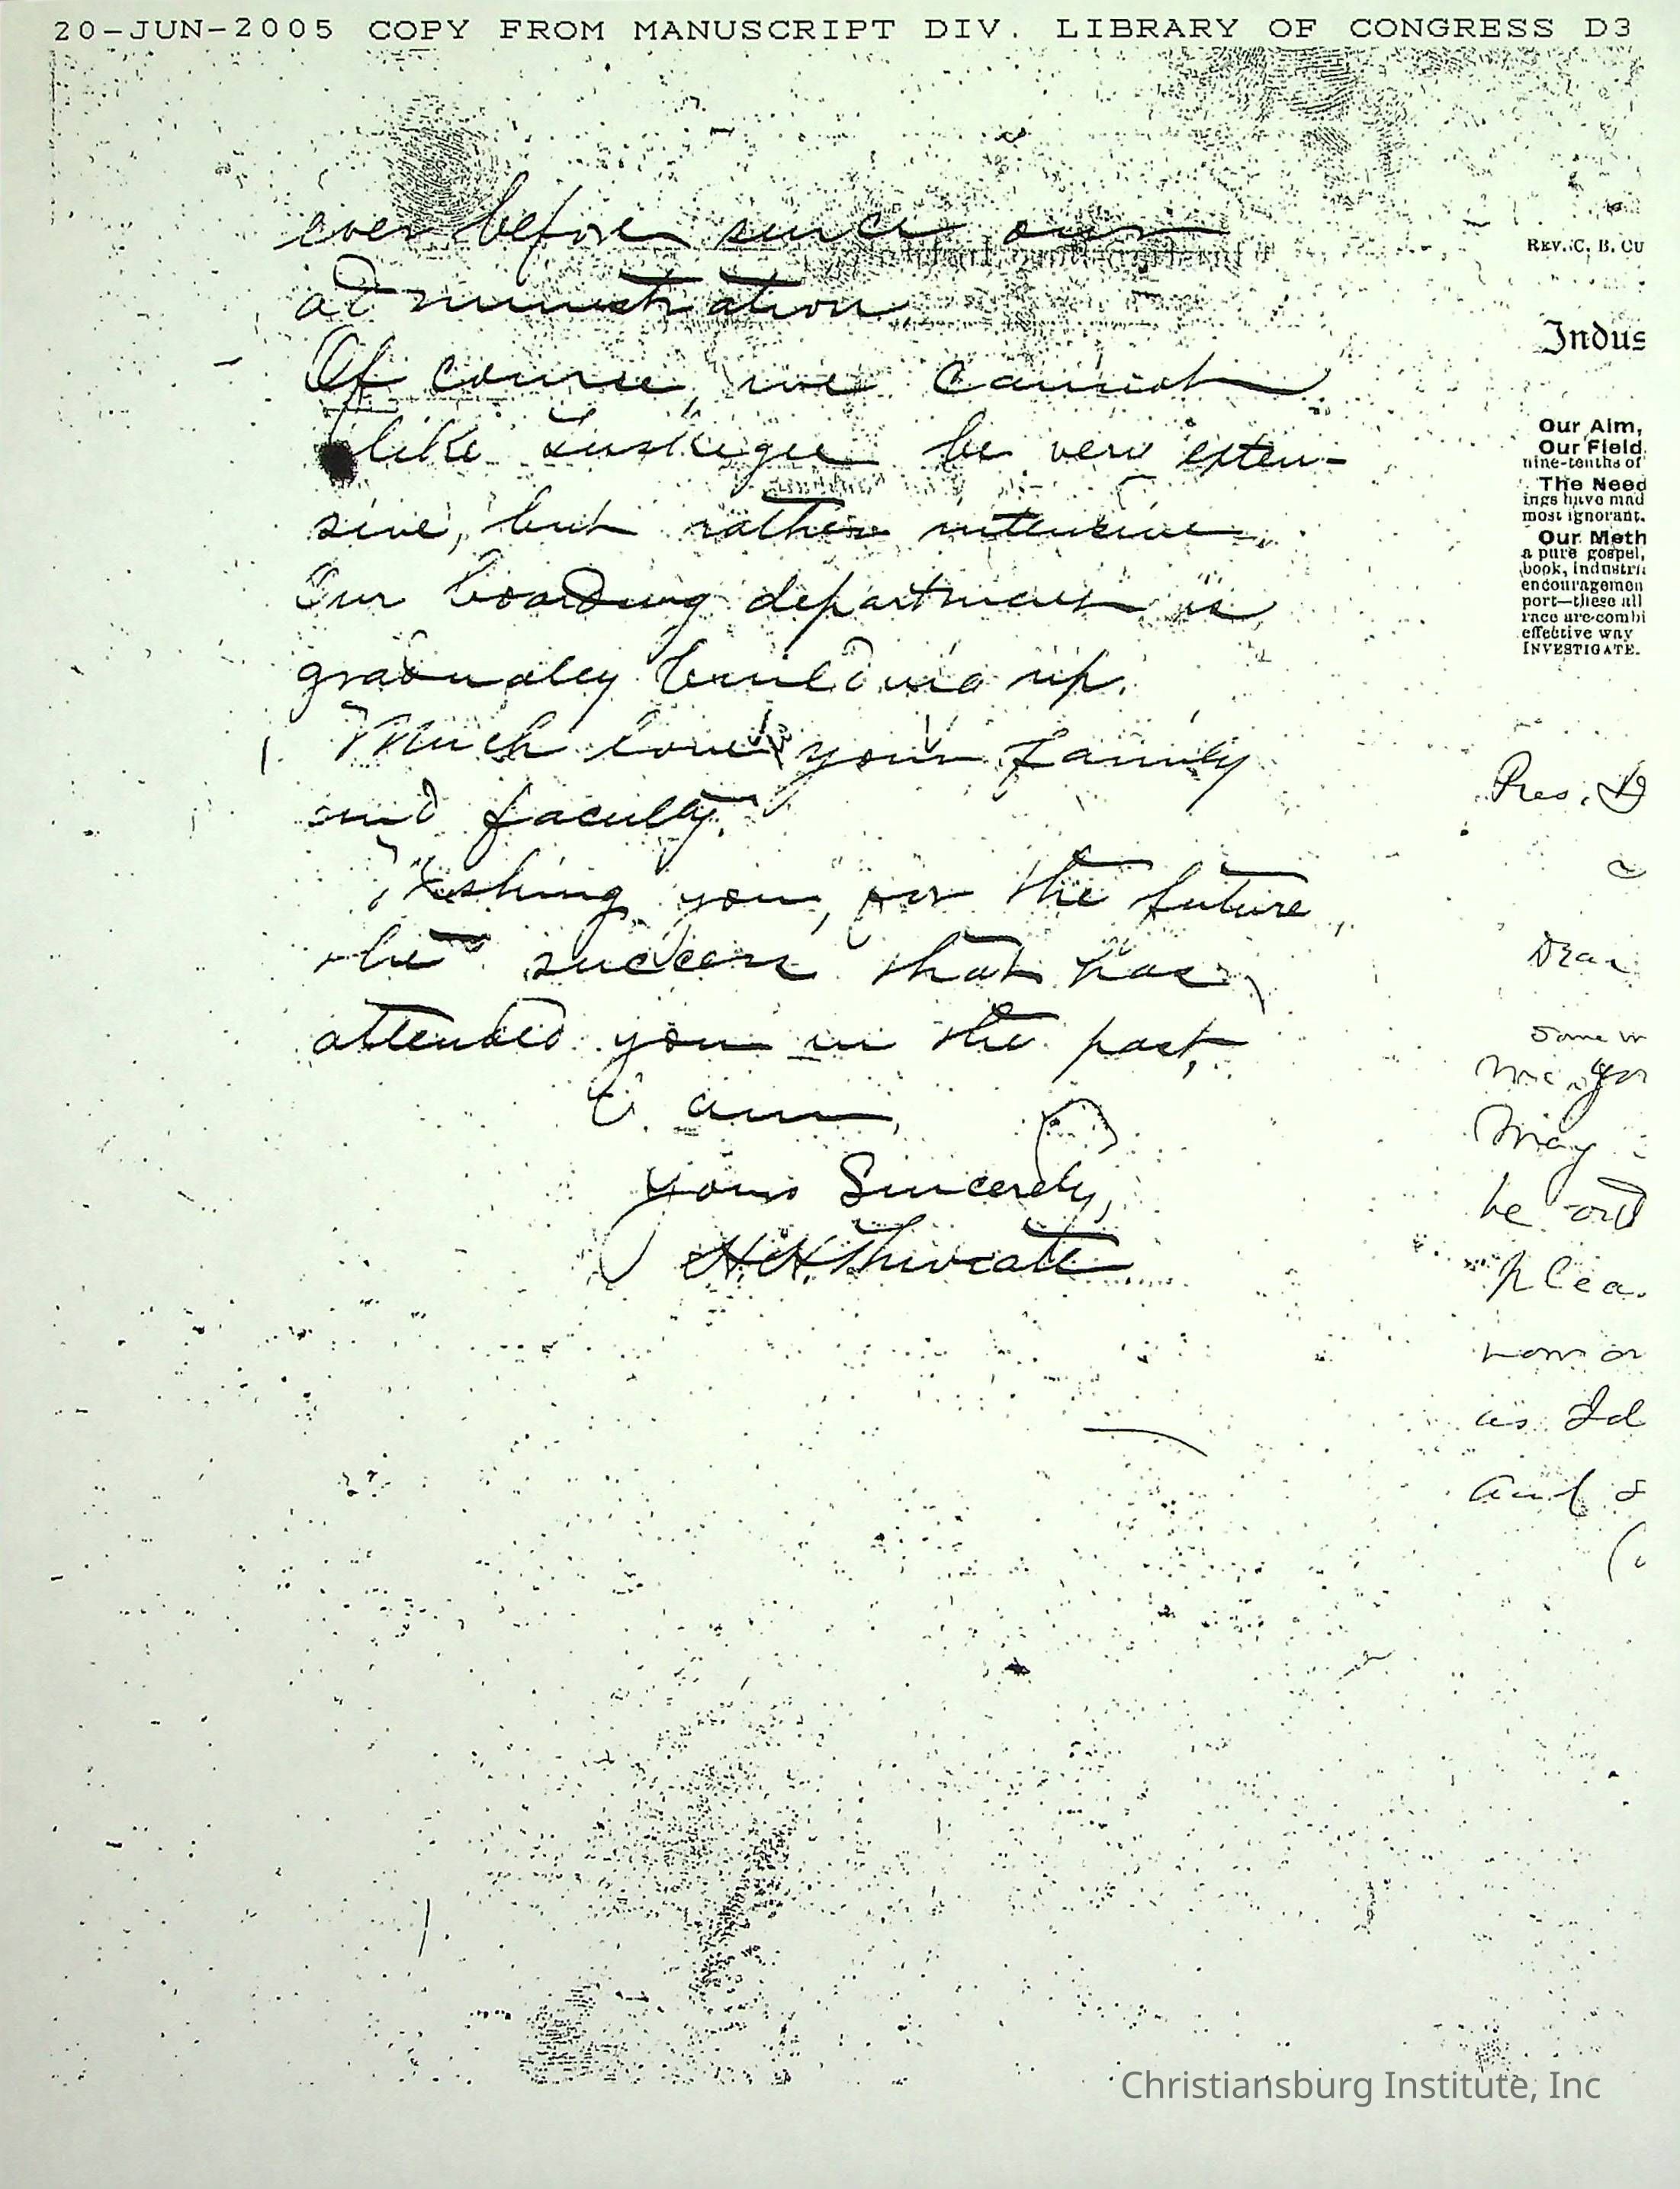 20-JUN-2005 COPY FROM MANUSCRIPT DIV. LIBRARY OF CONGRESS D3
ever before since our
administration
Of course, we cannot
like Tuskegee be very exten-
sive, but rather intensive.
Our boarding department is
gradually building up.
Much love to your family
and faculty.
Wishing you, for the future
the success that has
attended you in the past,
I am,
yours Sincerely,
REV. C. B. CU
Indus
Our Aim,
Our Field
nine-tenths of
The Need
ings have mad
most ignorant.
Our Meth
a pure gospel,
book, industri
encouragemen
port—these all
race are combi
effective way
INVESTIGATE.
Pres.
Dear
Some
may
be
plea
as
and
Christiansburg Institute, Inc